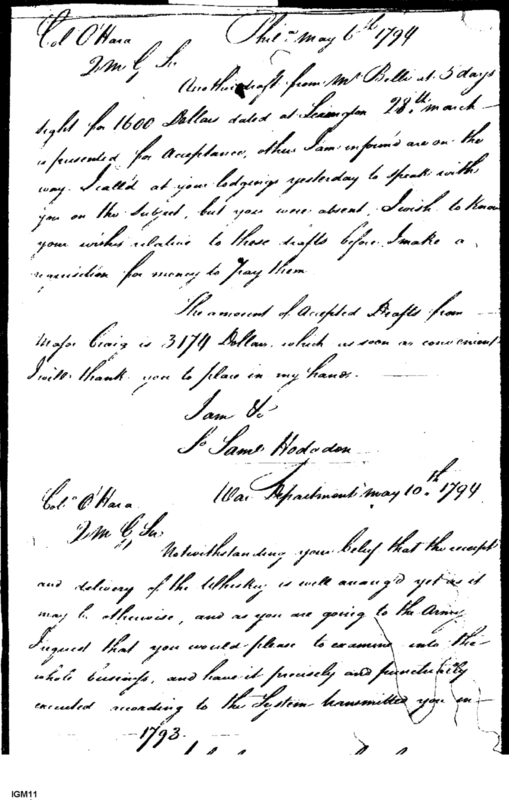 Col O'Hara Phila May 6th 1794
Q M G Sir
Another draft from Mr Belli at 5 days
sight for 1600 Dollars dated at Lexington 28th march
is presented for Acceptance, others I am inform'd are on the
way. I call'd at your lodgings yesterday to speak with
you on the Subject, but you were absent. I wish to Know
your wishes relative to those drafts before I make a
requisition for money to pay them
The amount of Accepted Drafts from
Major Craig is 3174 Dollars, which as soon as convenient
I will thank you to place in my hands.
I am &c
Saml Hodgdon
Col. O'Hara War Department May 10th 1794
Q M G Sir
Notwithstanding your belief that the receipt
and delivery of the Whiskey is well arrang'd yet as it
may be otherwise, and as you are going to the Army
I request that you would please to examine into the
whole business, and have it precisely and punctually
executed according to the System transmitted you in
1793.
IGM11